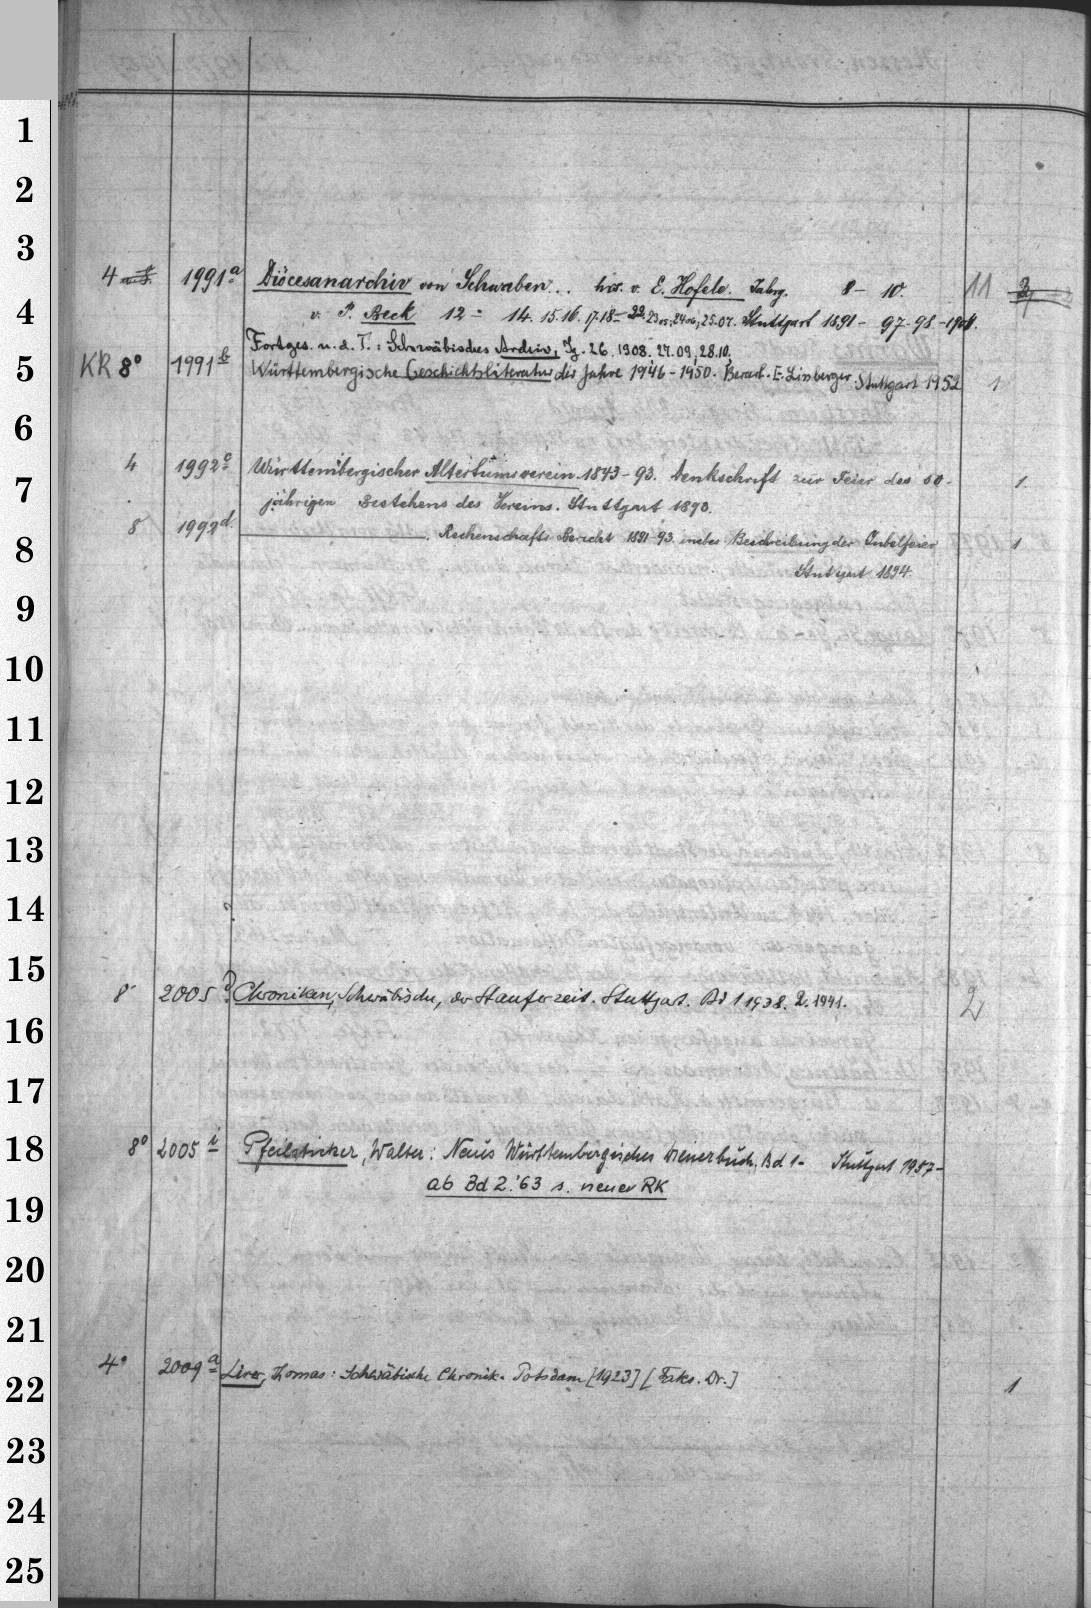 1
2
3
4 1991a Diöcesanarchiv von Schwaben.. hrsg. v. E. Hofele. Jahrg. 8 - 10. 11
4
v. P. Beck 12 - 14. 15.16. 17.18 - 22. 23.05, 24.06, 25.07. Stuttgart 1891 - 97-98 - 1904.
Fortges. u. d. T.: Schwäbisches Archiv, Jg. 26. 1908. 27.09, 28.10.
5
KR 8° 1991b Württembergische Geschichtsliteratur der Jahre 1946-1950. Bearb. E. Linberger Stuttgart 1952 1
6
4 1992c Württembergischer Altertumsverein. 1843-93. Denkschrift zur Feier des 50- 1
7
jährigen Bestehens des Vereins. Stuttgart 1893.
8 1992d ———. Rechenschafts Bericht 1891-93 nebst Beschreibung der Jubelfeier 1
8
Stuttgart 1894.
9
10
11
12
13
14
15
8° 2005 Chroniken, Schwäbische, der Stauferzeit. Stuttgart. Bd 1 1938. 2. 1941. 2
16
17
18
8° 2005i Pfeilsticker, Walter: Neues Württembergisches Dienerbuch, Bd 1- Stuttgart 1957-
ab Bd 2.'63 s. neuer RK
19
20
21
4° 2009a Lirer, Thomas: Schwäbische Chronik. Potsdam [1923] [Faks. Dr.] 1
22
23
24
25